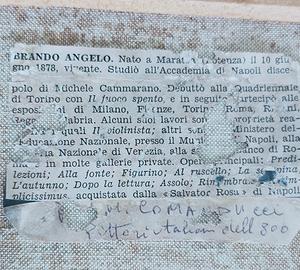 BRANDO ANGELO. Nato a Marat (Potenza) il 10 giu
gno 1878, vivente. Studiò all'Accademia di Napoli disce-
polo di Michele Cammarano. Debuttò alla Quadriennale
di Torino con Il fuoco spento, e in seguito partecipò alle
esposizioni di Milano, Firenze, Torino, Roma, R
Reg abria. Alcuni suoi lavori sono proprietà rea
quali Il violinista; altri sono Ministero del-
l'Educazione Nazionale, presso il Mu Napoli, alla
Nazionale e di Venezia, alla s Banco di Ro-
ma e in molte gallerie private. Opere principali: Predi-
lezioni; Alla fonte; Figurino; Al ruscello; La
L'autunno; Dopo la lettura; Assolo; Rim
plicissimus, acquistata dalla «Salvator Rosa» di Napoli
ROMA
Pittori italiani dell'800